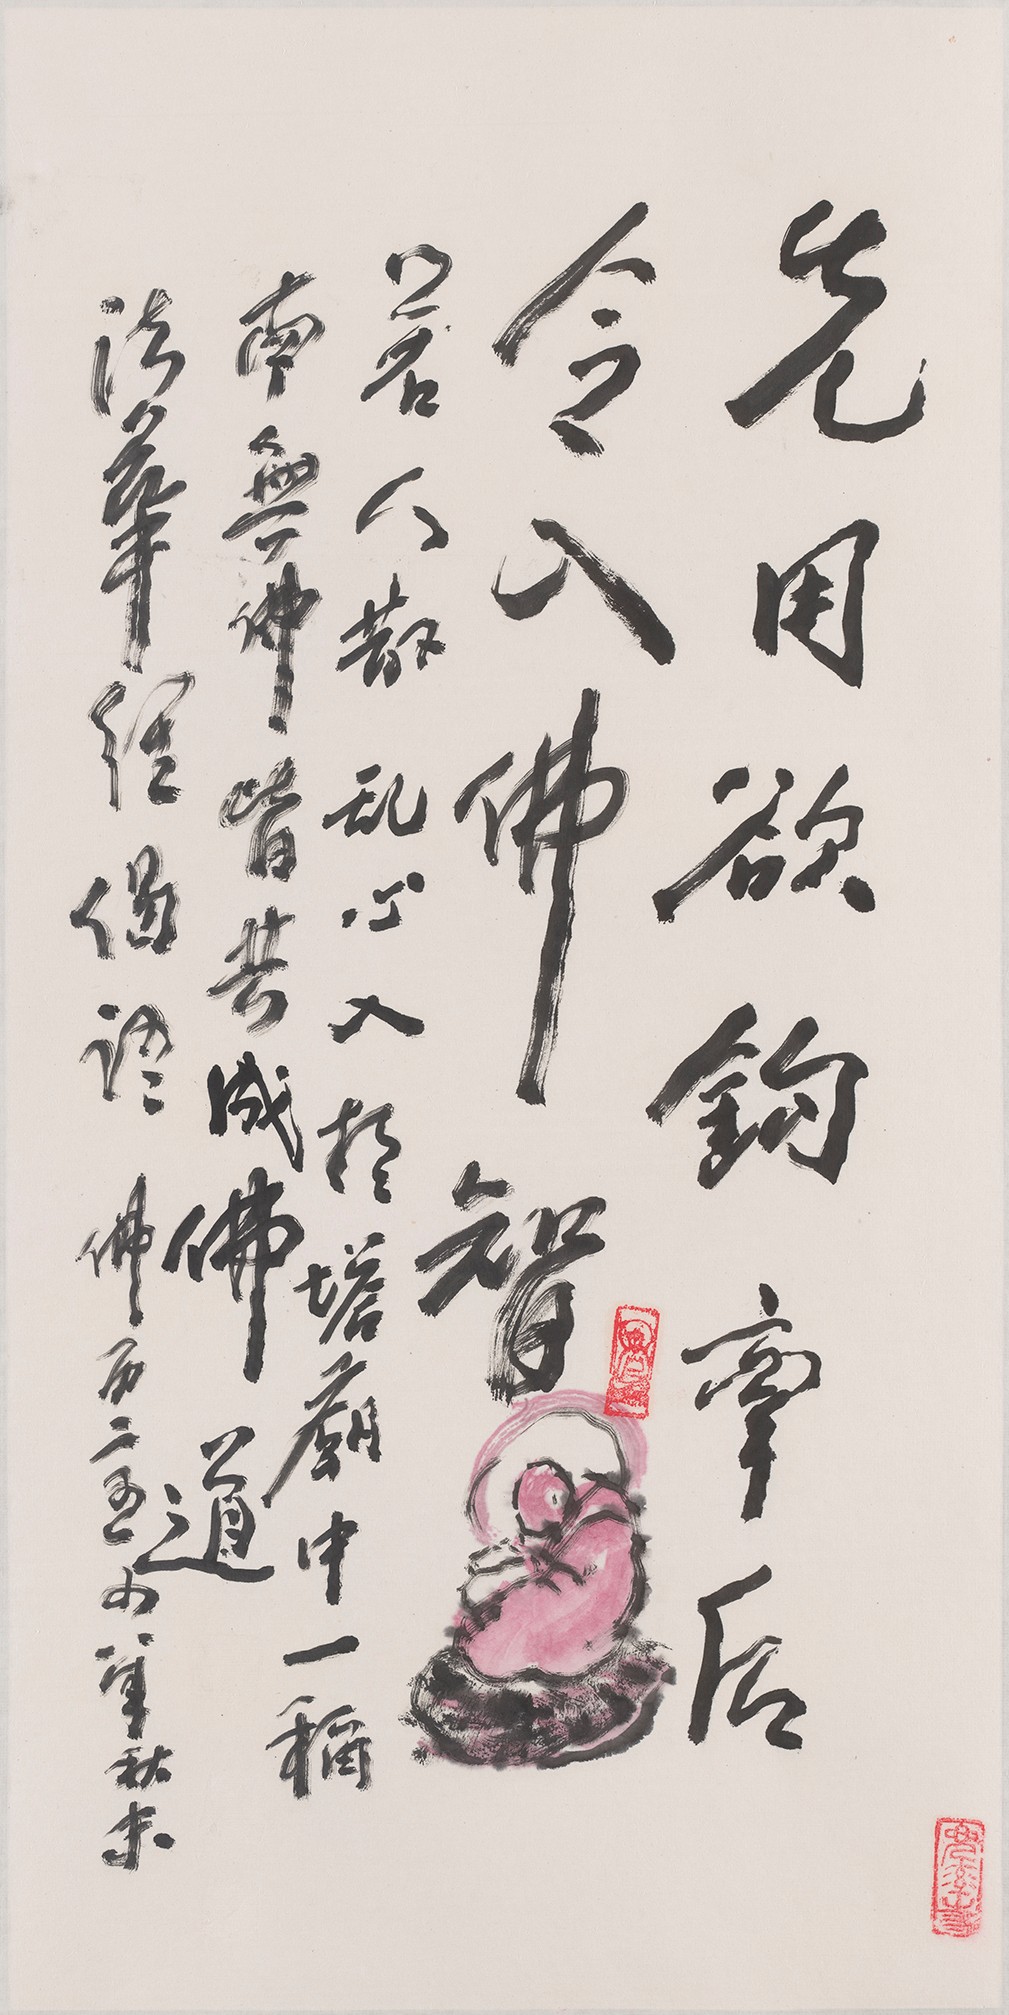 先用欲鈎牽后
令入佛
智
若人散乱心入於塔廟中一稱
南無佛皆共成佛道
法華經偈語 佛历二五
秋末